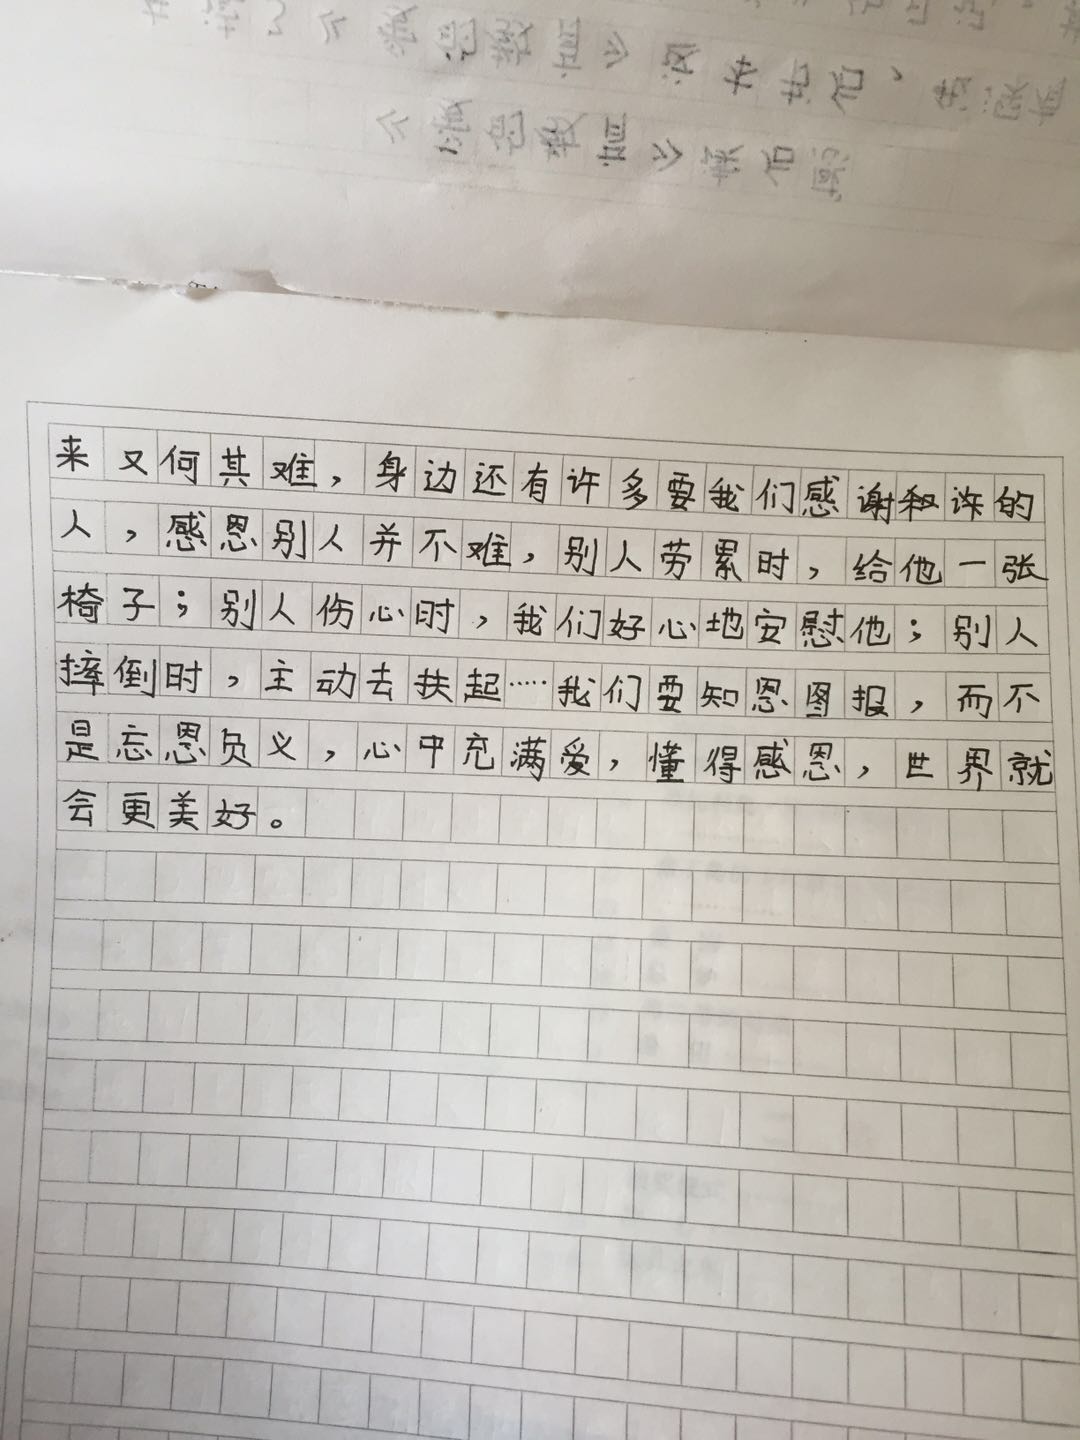 来又何其难，身边还有许多要我们感谢和许的
人，感恩别人并不难，别人劳累时，给他一张
椅子；别人伤心时，我们好心地安慰他；别人
摔倒时，主动去扶起……我们要知恩图报，而不
是忘恩负义，心中充满爱，懂得感恩，世界就
会更美好。